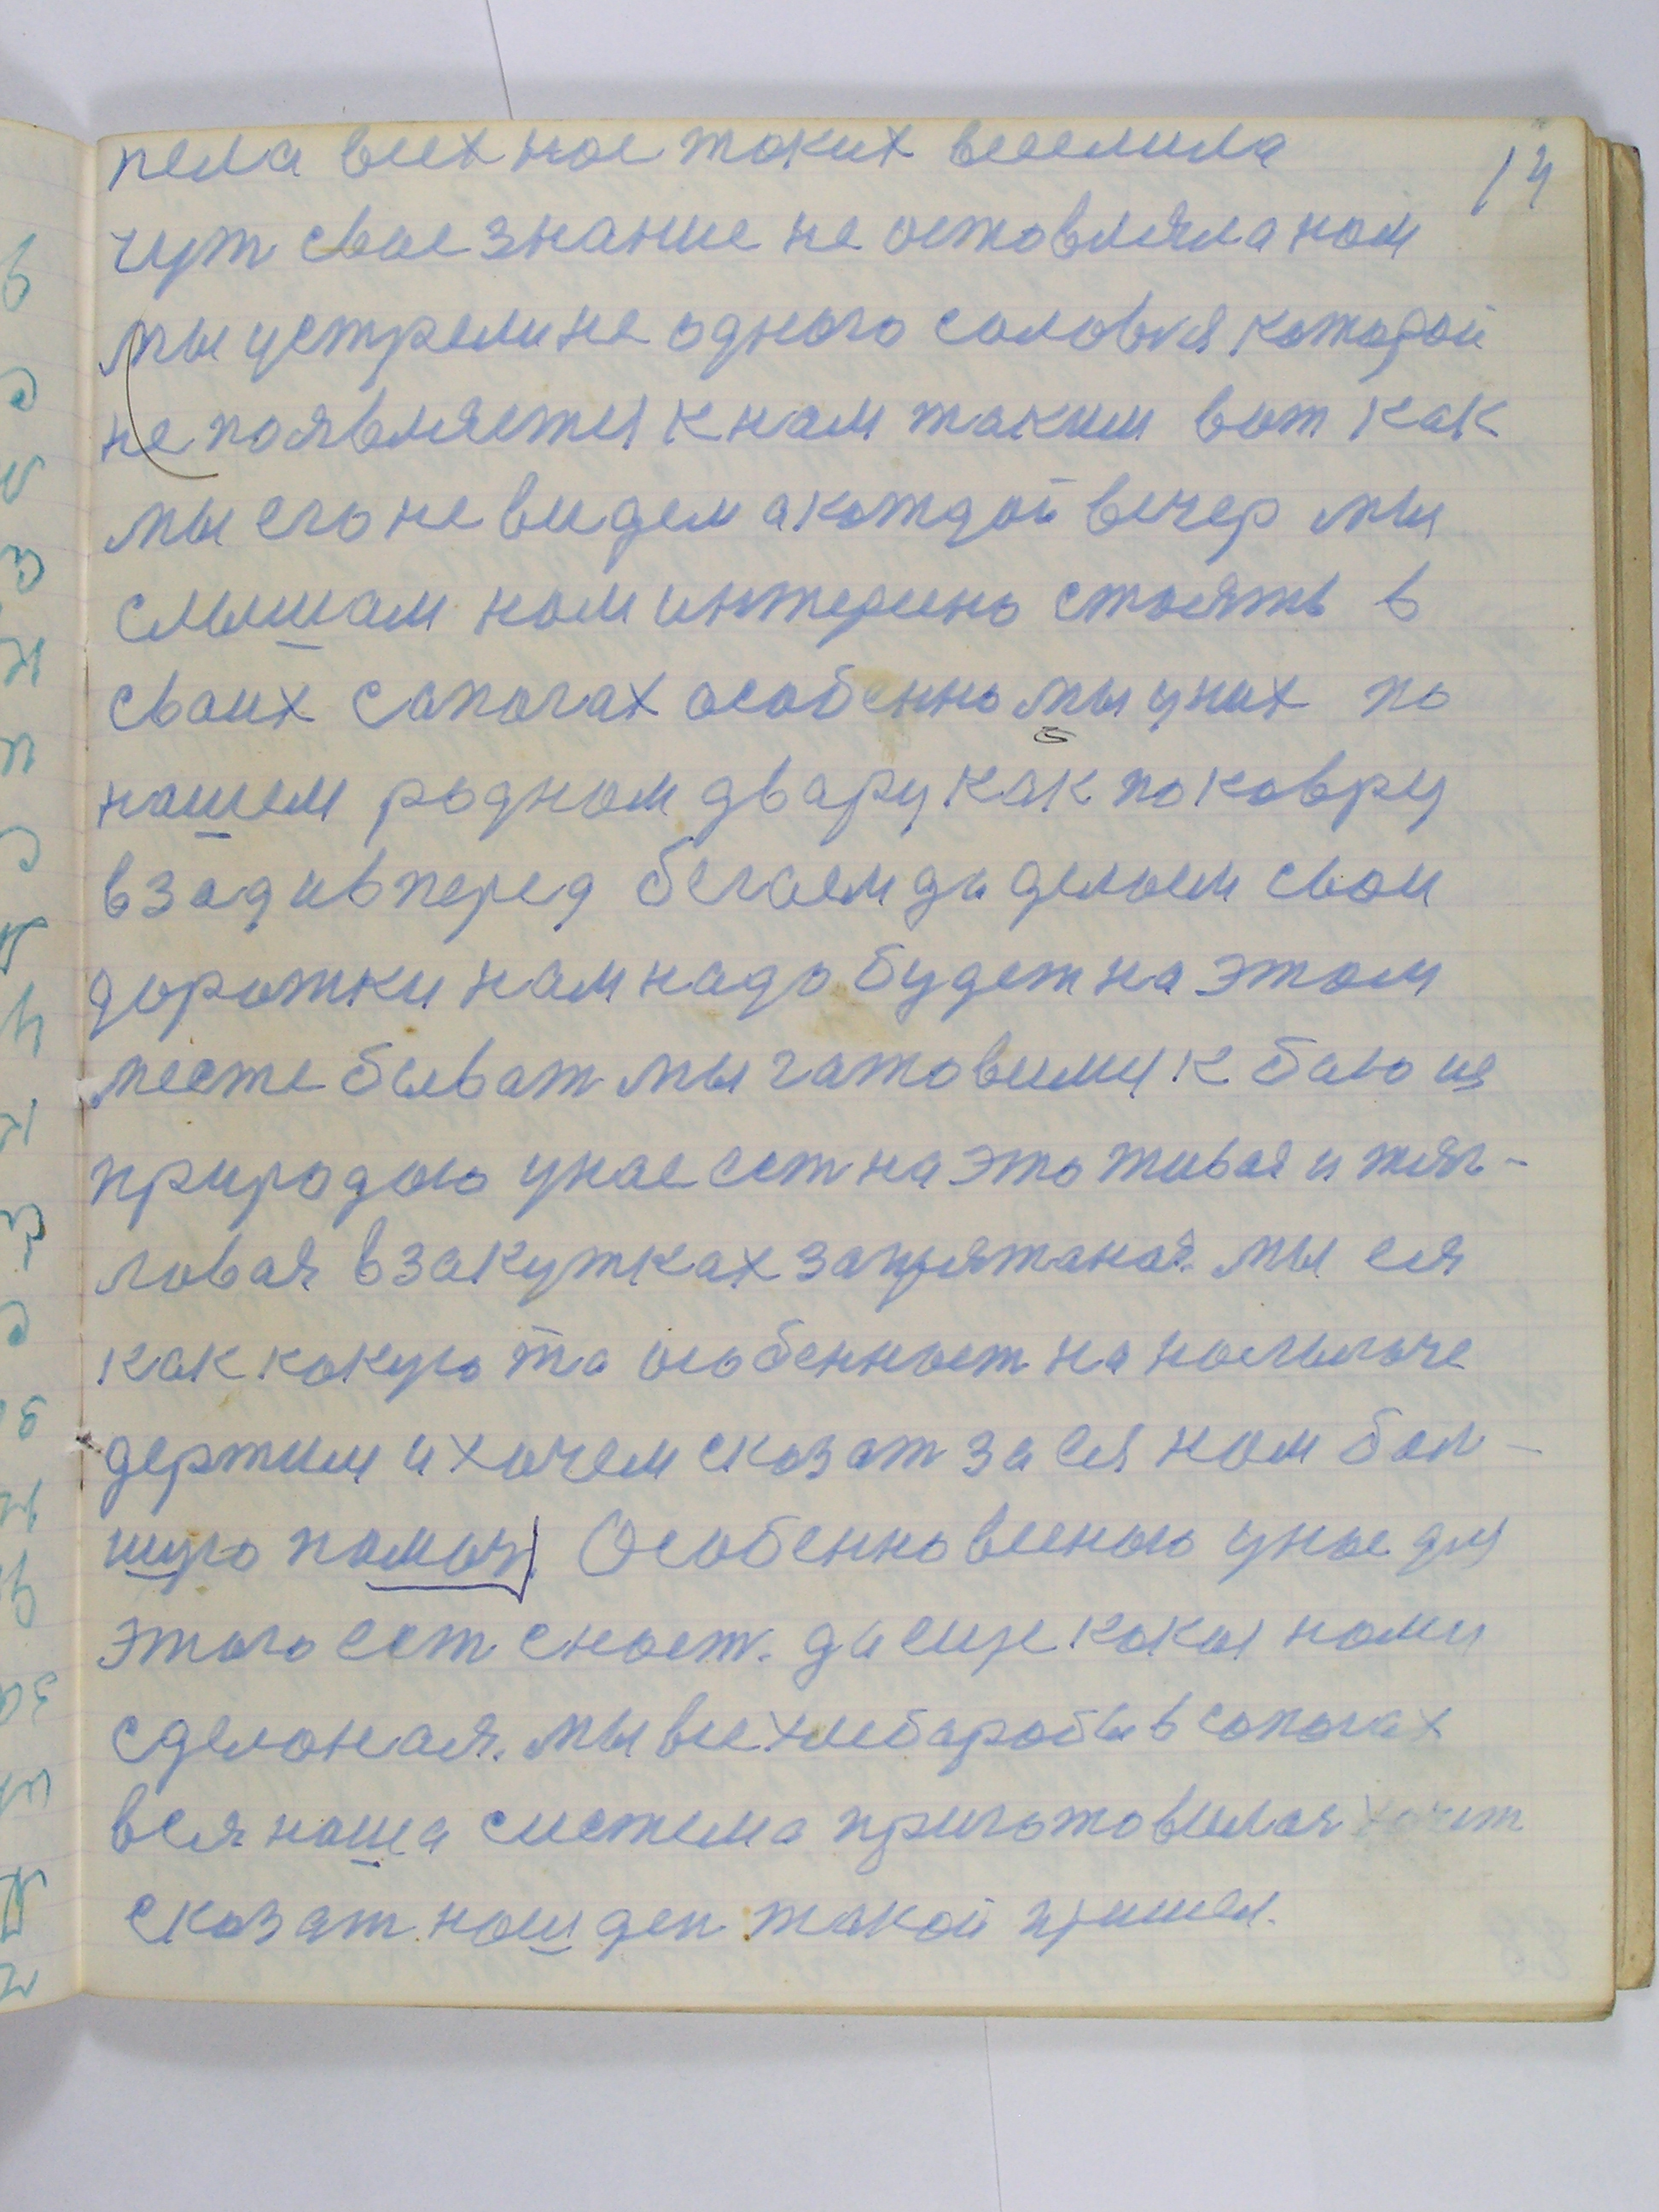 14
пела всех нас таких веселила
чут свое знание не оставляла нам
мы устрели не одного соловия каторой
не появляется к нам таким вот как
мы его не видем а каждой вечер мы
слышам нам интерено стоять в
своих сапогах особенно мы у них по
нашем родном двару как по ковру
в зад ивперед бегаем да делаем свои
дорожки нам надо будет на этом
месте быват мы гатовими к баю из
природаю у нас ест на это живая и тяг-
ловая в закутках запрятаная. мы ея
как какуюта особенност на
держим и хочем сказат за ея нам бол-
шую помоч. Особенно весною у нас для
этаго ест снаст. да еще какая нами
сделоная. мы все хлебаробы в сапогах
вся наша система приготовилася хочет
сказат наш ден такой пришел.